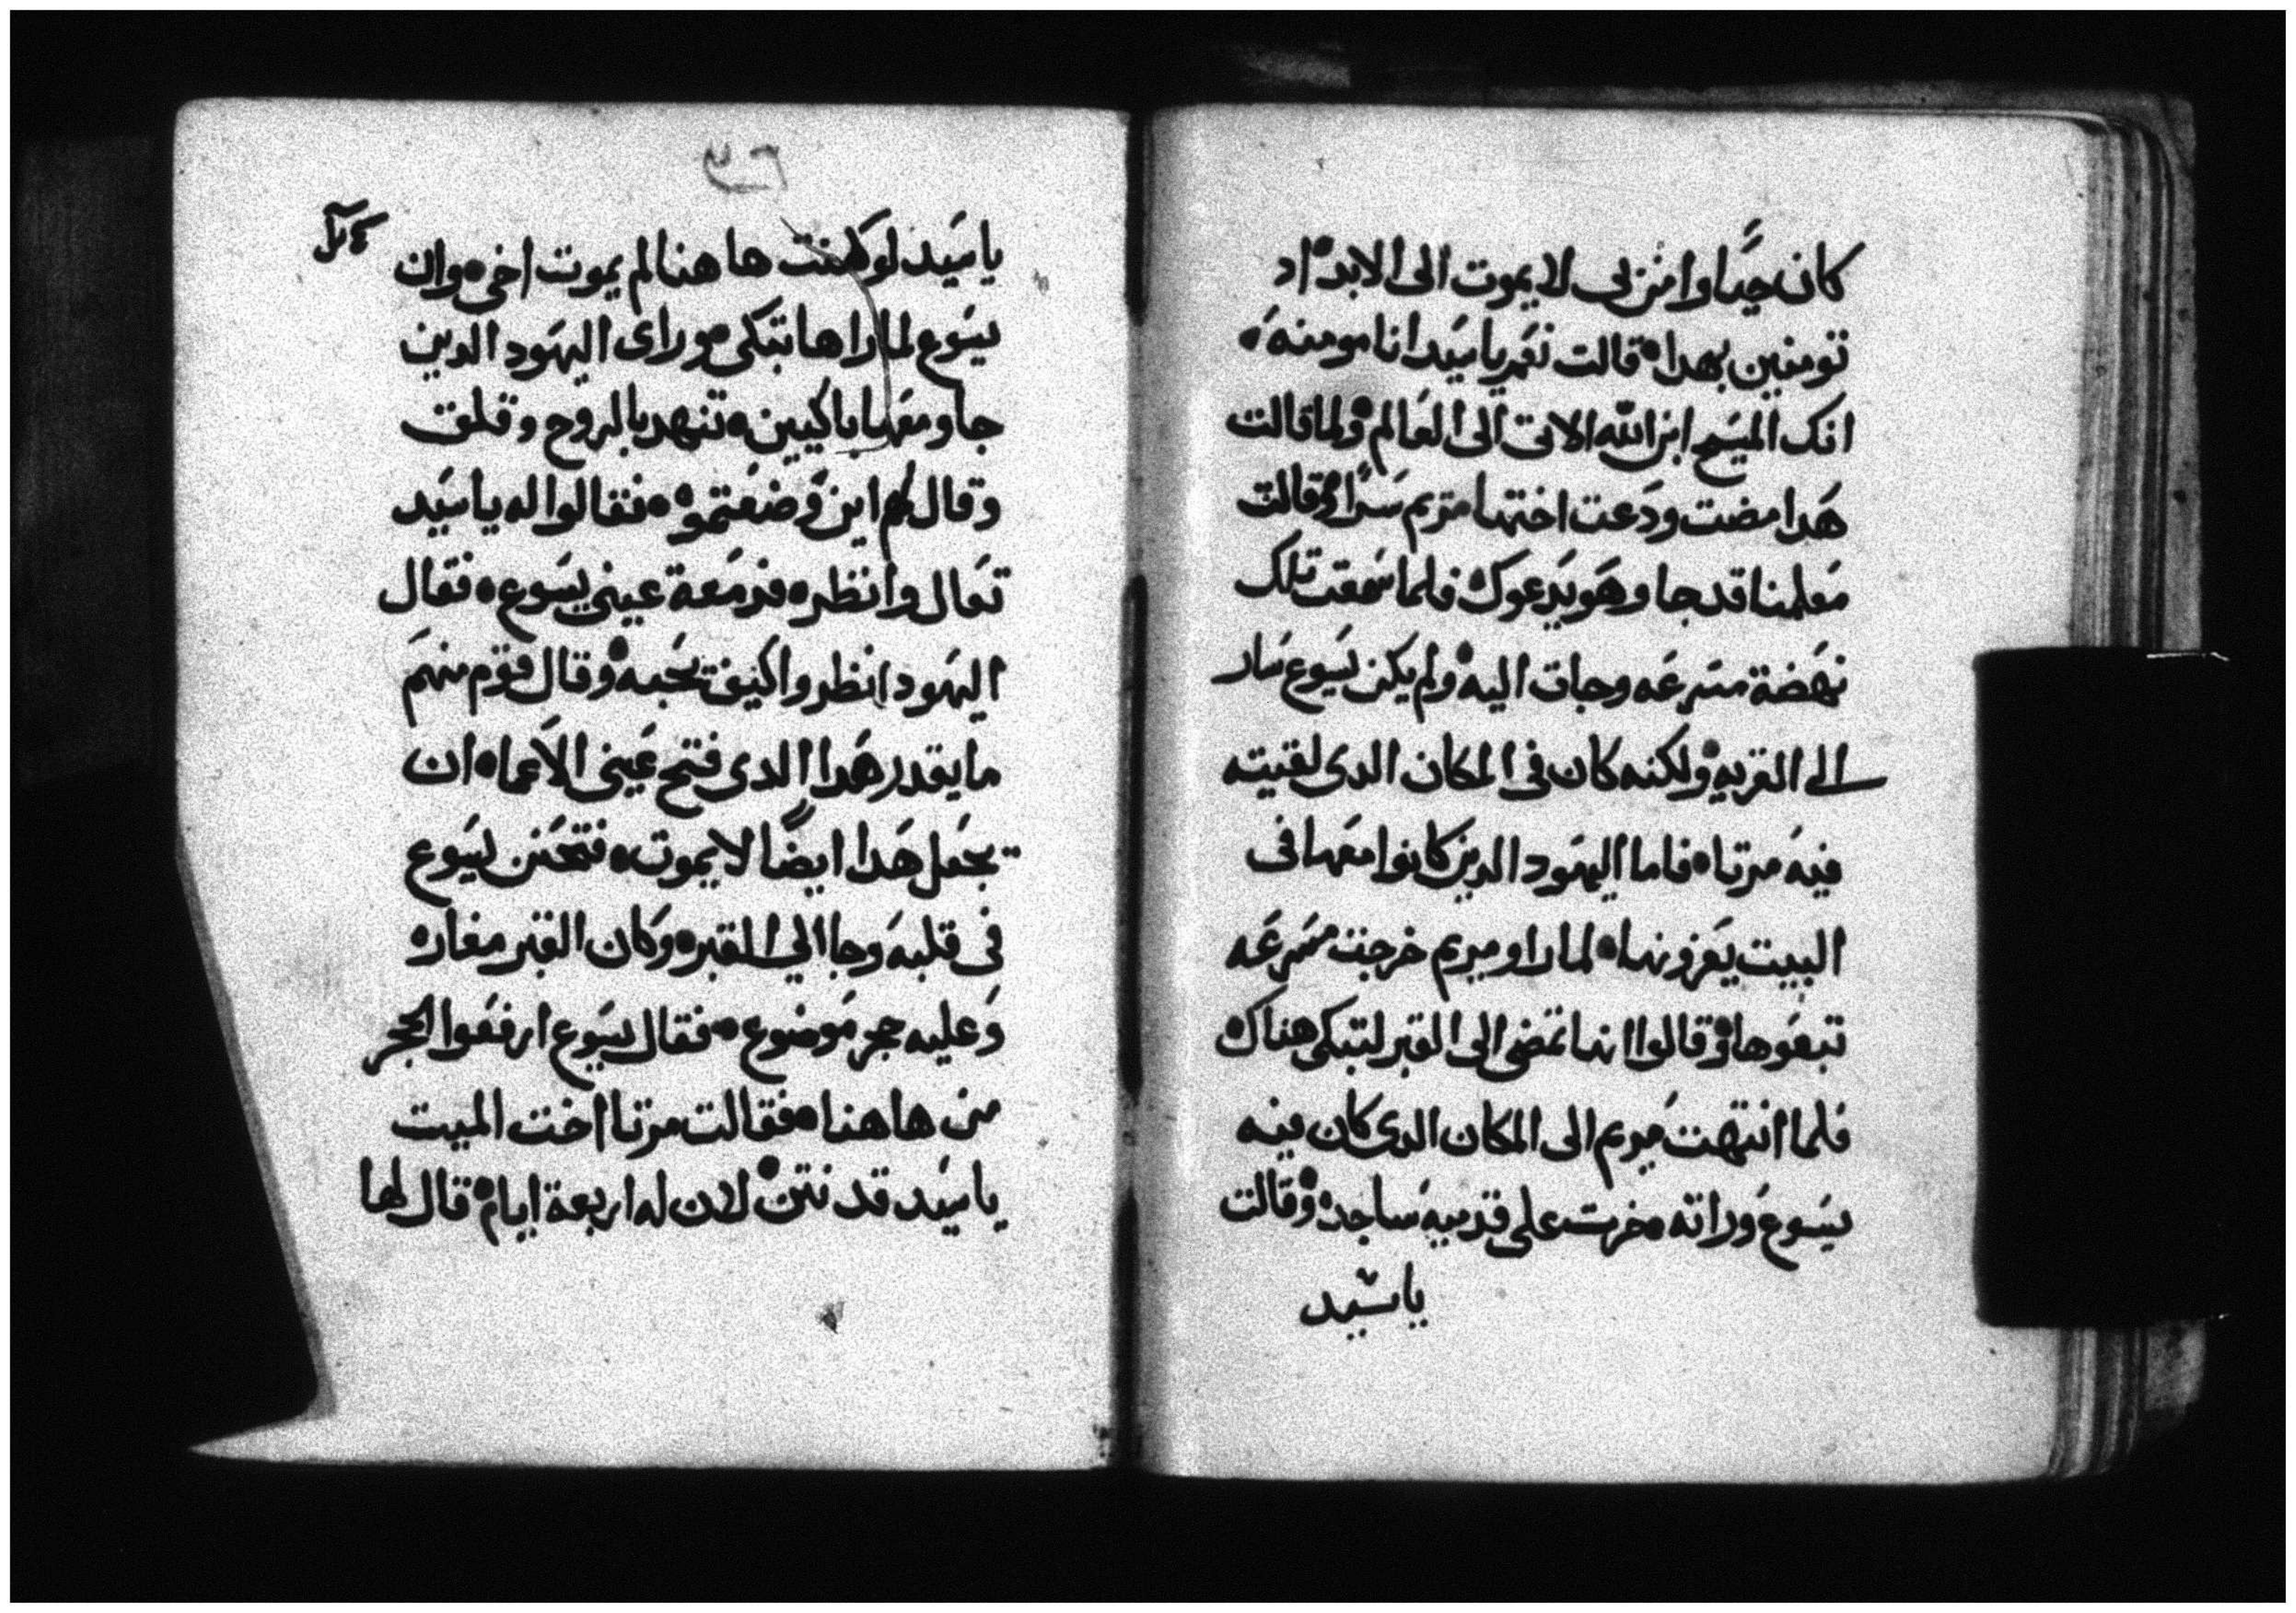 كان حيًا وامن بى لا يموت الى الابد اد
تومنين بهدا قالت نعم ياسيد انا مومنه
انك المسيح ابن الله الاتى الى العالم ولما قالت
هدا مضت ودعت اختها مريم سرًا وقالت
معلمنا قد جا وهو يدعوك فلما سمعت تلك
نهضة مسرعه وجات اليه ولم يكن يسوع سار
الى القريه ولكنه كان فى المكان الدى لقيته
فيه مرتا فاما اليهود الدين كانوا معها فى
البيت يعزونها لما راو مريم خرجت مسرعه
تبعوها وقالوا انها تمضى الى القبر لتبكى هناك
فلما انتهت مريم الى المكان الدى كان فيه
يسوع وراته خرت على قدميه ساجده وقالت
ياسيد
ياسيد لو كنت هاهنا لم يموت اخى وان
يسوع لما راها تبكى وراى اليهود الدين
جاو معها باكيين تنهد بالروح وقلق
وقال لهم اين وضعتموه فقالوا له ياسيد
تعال وانظر فدمعة عينى يسوع فقال
اليهود انظروا كيف يحبه وقال قوم منهم
ما يقدر هدا الدى فتح عينى الاعما ان
يجعل هدا ايضًا لا يموت فتحنن يسوع
فى قلبه وجا الى المقبره وكان القبر مغاره
وعليه حجر موضوع فقال يسوع ارفعوا الحجر
من هاهنا فقالت مرتا اخت الميت
ياسيد قد نتن لان له اربعة ايام قال لها